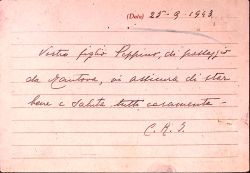 (Data) 25-9-1943
Vostro figlio Peppino, di passaggio
da Mantova, vi assicura di star
bene e saluta tutti caramente -
C. R. I.